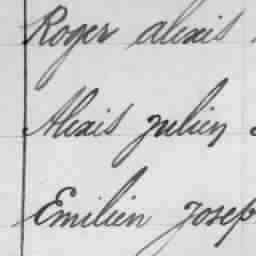 Roger alexis
Alexis julien
Emilien Josep